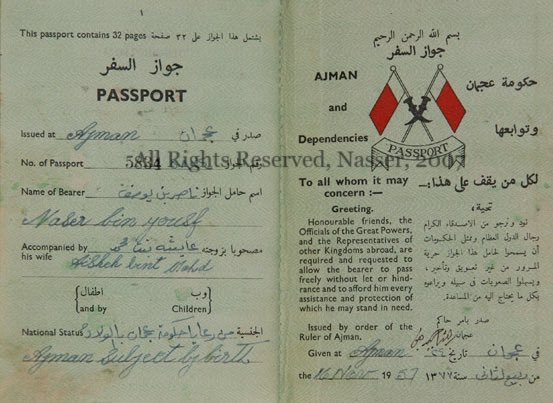 ١
This passport contains 32 pages يشتمل هذا الجواز على ٣٢ صفحة
جواز السفر
PASSPORT
Issued at Ajman عجمان صدر في
No. of Passport 5834 رقم الجواز
All Rights Reserved, Nasser, 2007
Name of Bearer ناصر بن يوسف اسم حامل الجواز
Naser bin yousf
Accompanied by his wife عايشه بنت مصحوبا بزوجته
bint Mohd
and by { اطفال } Children وب
National Status من رعايا حكومة عجمان بالولادة الجنسية
Ajman Subject by birth
بسم الله الرحمن الرحيم
جواز السفر
AJMAN حكومة عجمان
and
Dependencies وتوابعها
PASSPORT
To all whom it may concern :— لكل من يقف على هذا:—
Greeting. تحية،
Honourable friends, the
Officials of the Great Powers,
and the Representatives of
other Kingdoms abroad, are
required and requested to
allow the bearer to pass
freely without let or hind-
rance and to afford him every
assistance and protection of
which he may stand in need.
نود ونرجو من الاصدقاء الكرام
رجال الدول العظام وممثلي الحكومات
ان يسمحوا لحامل هذا الجواز حرية
المرور من غير تعويق وتأخير،
ويسهلوا الصعوبات في سبيله ويراعوه
بكل ما يحتاج اليه من المساعدة.
Issued by order of the صدر بامر حاكم
Ruler of Ajman. عجمان
Given at Ajman ٢٤ تاريخ عجمان في
the 16 Nov 1957 ١٣٧٧ سنة ربيع ثاني من